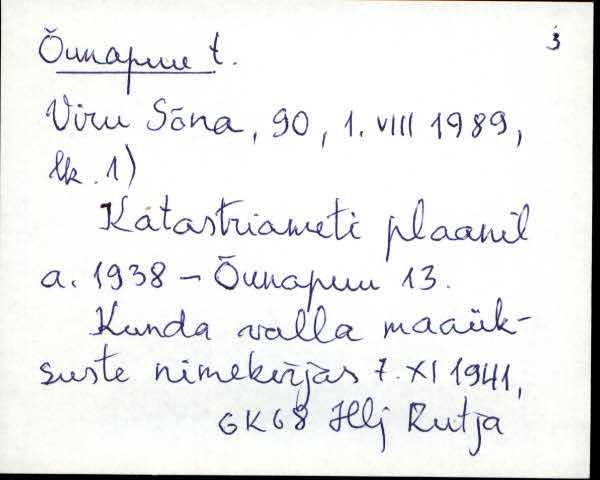 Õunapuu t.
3
Viru Sõna, 90, 1. VIII 1989,
lk. 1)
Katastriameti plaanil
a. 1938 – Õunapuu 13.
Kunda valla maaük-
suste nimekirjas 7. XI 1941,
GK68 Hlj Rutja